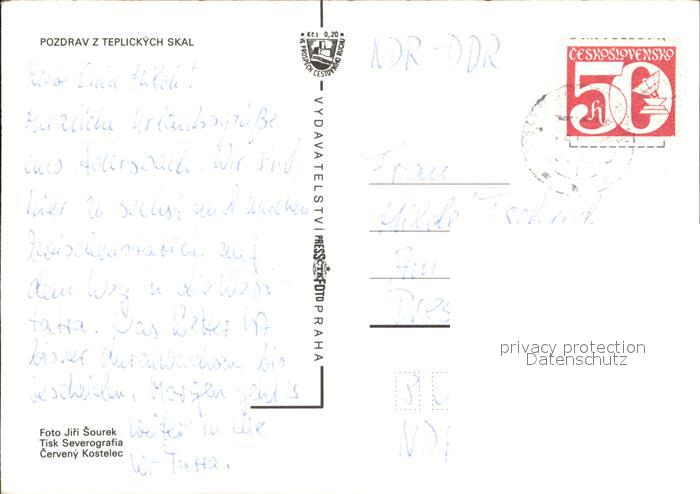 POZDRAV Z TEPLICKÝCH SKAL
Kčs 0,20
VE PROSPĚCH CESTOVNÍHO RUCHU
NDR-DDR
ČESKOSLOVENSKO
50
h
Herzliche Urlaubsgrüße
aus Adersbach. Wir sind
hier zu sechst und machen
Zwischenstation auf
dem Weg in die West-
tatra. Das Wetter ist
bisher durchwachsen bis
bescheiden. Morgen geht's
weiter in die
W-Tatra.
VYDAVATELSTVÍ PRESSFOTO PRAHA
ČTK
Frau
Hilde
Am
Dres
ND
privacy protection
Datenschutz
Foto Jiří Šourek
Tisk Severografia
Červený Kostelec